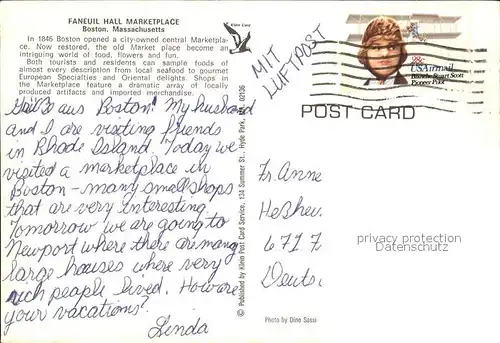 FANEUIL HALL MARKETPLACE
Boston, Massachusetts
In 1846 Boston opened a city-owned central Marketpla-
ce. Now restored, the old Market place become an
intriguing world of food, flowers and fun.
Both tourists and residents can sample foods of
almost every description from local seafood to gourmet
European Specialties and Oriental delights. Shops in
the Marketplace feature a dramatic array of locally
produced artifacts and imported merchandise.
aus Boston! My husband
and I are visiting friends
in Rhode Island. Today we
visited a marketplace in
Boston - many small shops
that are very interesting.
Tomorrow we are going to
Newport where there are many
large houses where very
rich people lived. How are
your vacations?
Linda
Klein Card
© Published by Klein Post Card Service, 134 Summer St., Hyde Park, MA. 02136
MIT
LUFTPOST
28c
USAirmail
Blanche Stuart Scott
Pioneer Pilot
POST CARD
Fr. Anne
671
privacy protection
Datenschutz
Photo by Dino Sassi